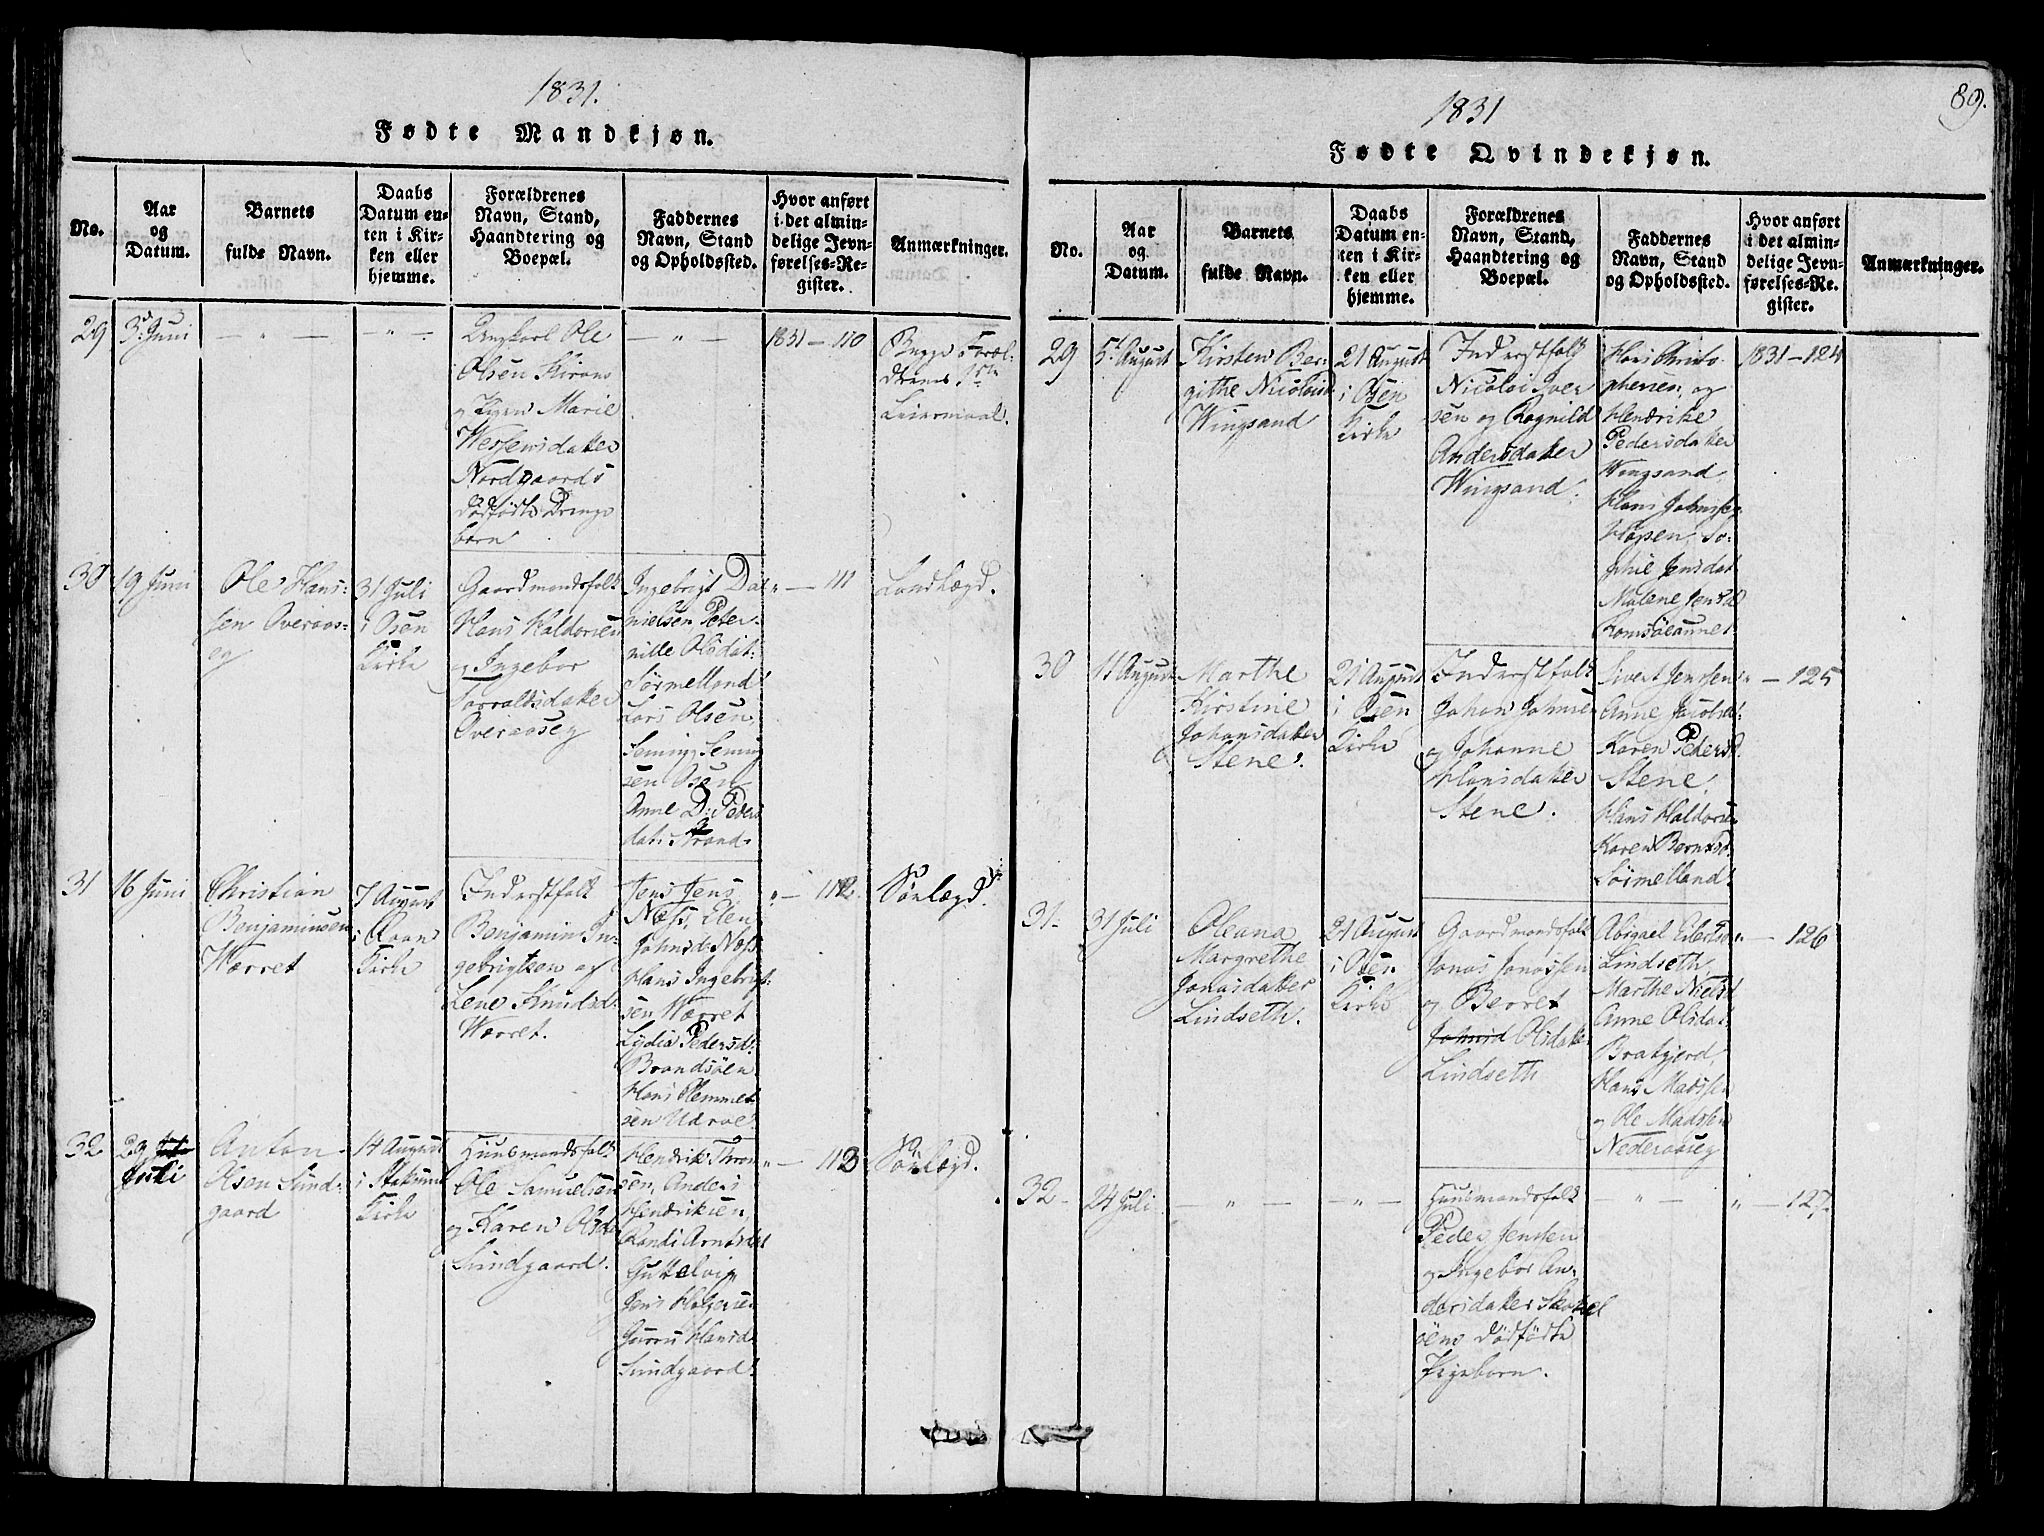 1831.
Fødte Mandkjøn.
No.
Aar
og
Datum.
Barnets
fulde Navn.
Daabs
Datum en-
ten i Kir-
ken eller
hjemme.
Forældrenes
Navn, Stand,
Haandtering og
Boepæl.
Faddernes
Navn, Stand
og Opholdssted.
Hvor anført
i det almin-
delige Jevn-
førelses-Re-
gister.
Anmærkninger.
29
3 Juni
— " —
— " —
Ungkarl Ole
Olsen
og Marie
Nordgaards
dödfödte Drenge
barn.
— " —
1831 — 110
Begge Foræl-
drenes 1ste
Leiermaal.
30
19 Juni
Ole Hans-
sen Overaas-
eg
31 Juli
i Osen
Kirke
Gaardmandsfolk
Hans Haldorsen
og Ingebor
Overaaseg
Ingebrigt Da-
nielsen, Peter-
nille Olsdat:
Sörmelland
Lars Olsen,
sen Osen
Anne D: Peders
dat: Strand.
" — 111
Landlægd.
31
16 Juni
Christian
Benjaminsen
Warret
7 August
i Roan
Kirke
Inderstfolk
Benjamin In-
gebrigtsen og
Lene Knudsd:
Warret.
Jens Jens
Næss, Elen
Johnsd: Næss
Hans Ingebrigt-
sen Warret
Lydia Pedersd:
Brandsöen
Hans Klemmet
sen Udroe.
" — 112.
Sönlægd.
32
29
Juli
Anton
Olsen Sund-
gaard
14 August
i Stoksund
Kirke
Huusmandsfolk
Ole Samuelsen
og Karen Olsd:
Sundgaard.
Hendrik Thron
sen, Anders
Hendriksen,
Randi Arntsdat
Guttelvig
Jens Holgersen
Gurru Hansd
Sundgaard.
" — 113
Sönlægd.
89.
1831
Fødte Qvindekjøn.
No.
Aar
og
Datum.
Barnets
fulde Navn.
Daabs
Datum en-
ten i Kir-
ken eller
hjemme.
Forældrenes
Navn, Stand,
Haandtering og
Boepæl.
Faddernes
Navn, Stand
og Opholdssted.
Hvor anført
i det almin-
delige Jevn-
førelses-Re-
gister.
Anmærkninger.
29
5t August
Kirsten Ber-
githe Nicolaid
Wingsand
21 August
i Osen
Kirke
Inderstfolk
Nicolai Iver
sen og Ragnild
Andersdatter
Wingsand.
Hans Christo-
phersen, og
Hendrike
Pedersdatter
Wingsand,
Hans Johns
Hopsen, So-
phie Jensdat
Malene Jensd
30
11 August
Marthe
Kirstine
Johansdatter
Stene.
21 August
i Osen
Kirke
Inderstfolk
Johan Johnsen
og Johanne
Hansdatter
Stene.
Sivert Jensen
Anne Jacobsd:
Karen Pedersd:
Stene,
Hans Haldorsen
Karen Berntsd:
Sörmelland.
" — 125
31.
31 Juli
Oleana
Margrethe
Jonasdatter
Lindseth.
21 August
i Osen
Kirke
Gaardmandsfolk
Jonas Jonassen
og Berret
Olsdatter
Lindseth
Abigael Eilertsen
Lindseth,
Marthe Nielsd
Anne Olsdat:
Bratgjerd,
Hans Madssen
og Ole Madssen
Nederaaseg
" — 126
32
24 Juli
— " —
— " —
Huusmandsfolk
Peder Jensen
og Ingebor An-
dersdatter
dödfödte
Pigebarn.
— " —
" — 127.
1831 — 124